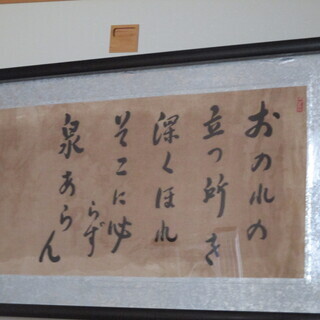 おのれの
立つ所を
深くほれ
そこに必
らず
泉あらん